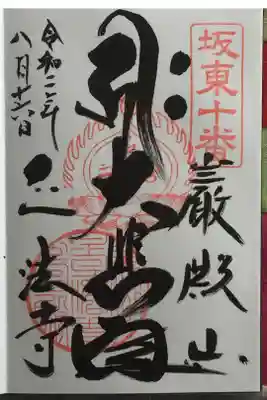 坂東十番
巌殿山
大悲閣
正法寺
令和二年
八月十六日